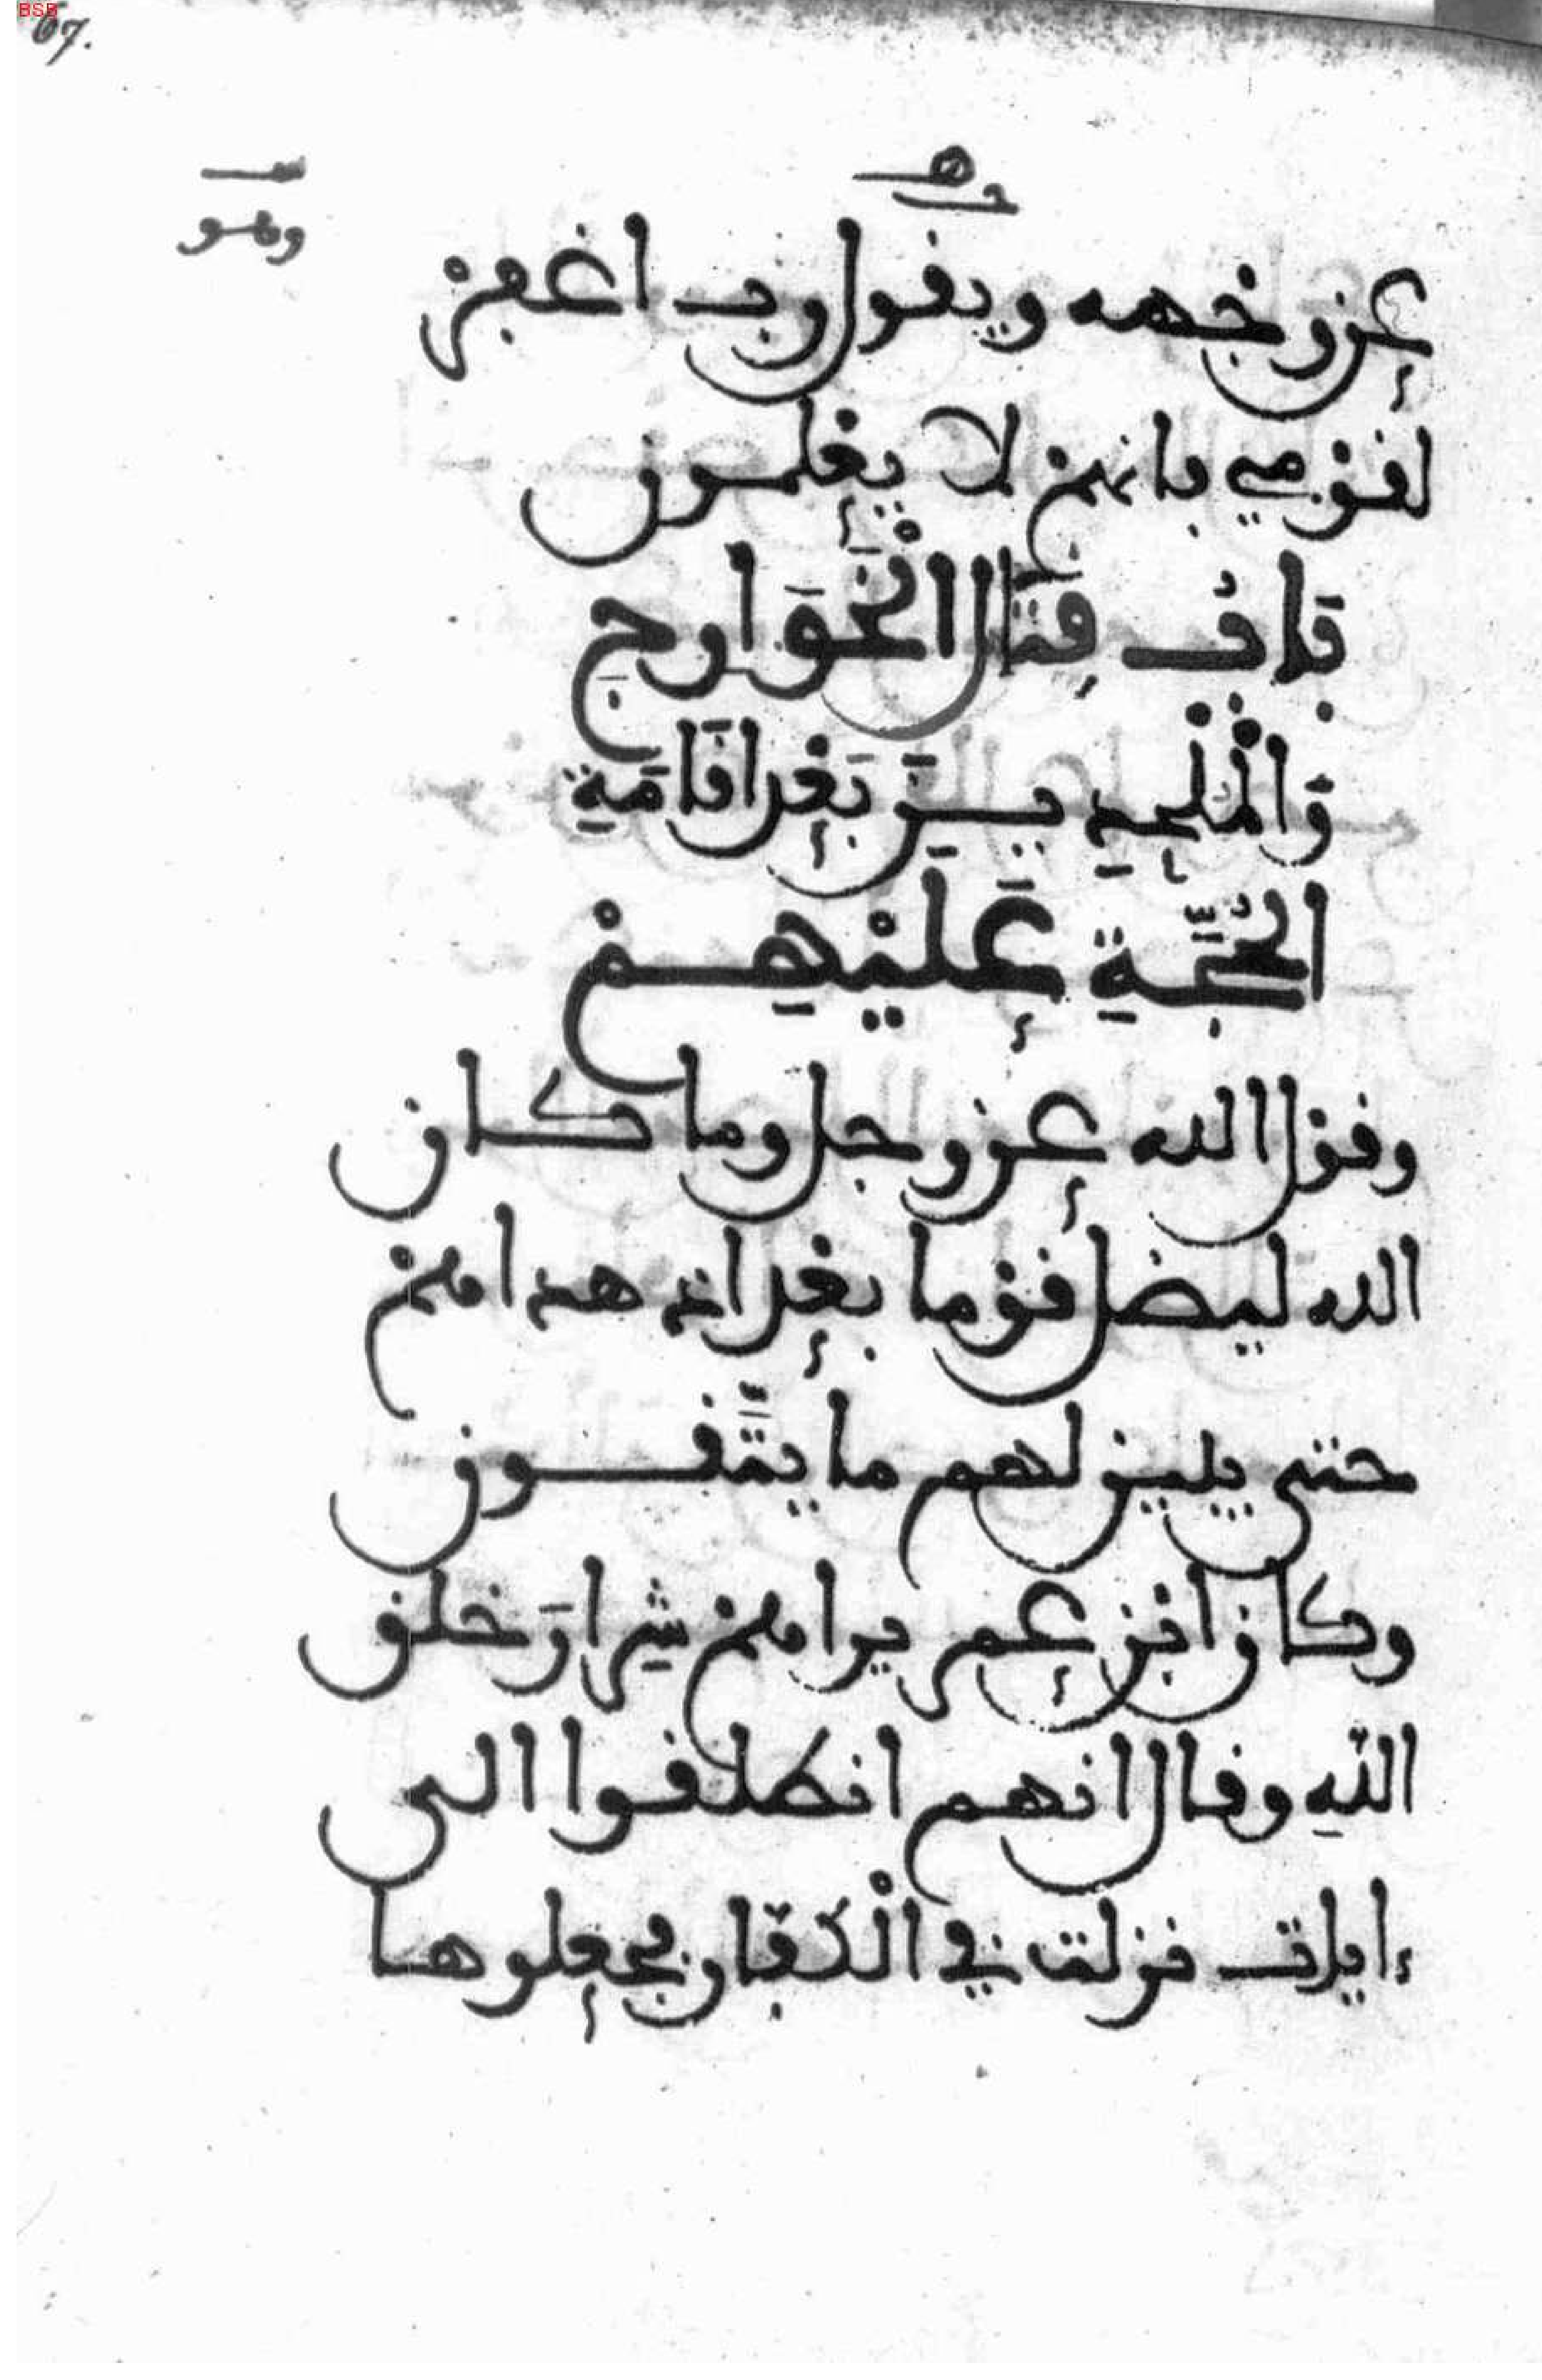 67.
وهو
عن وجهه ويقول رب اغفر
لقومي بانهم لا يعلمون
بَاب قِتَال الْخَوَارِجِ
وَالْمُلْحِدِينَ بَعْدَ اقَامَةِ
الْحُجَّةِ عَلَيْهِمْ
وقول الله عز وجل وما كان
الله ليضل قوما بعد اذ هداهم
حتى يبين لهم ما يتَّقون
وكان ابن عمر يراهم شِرارَ خلق
اللهِ وقال انهم انطلقوا الى
ءايات نزلت في الْكفّار فجعلوها